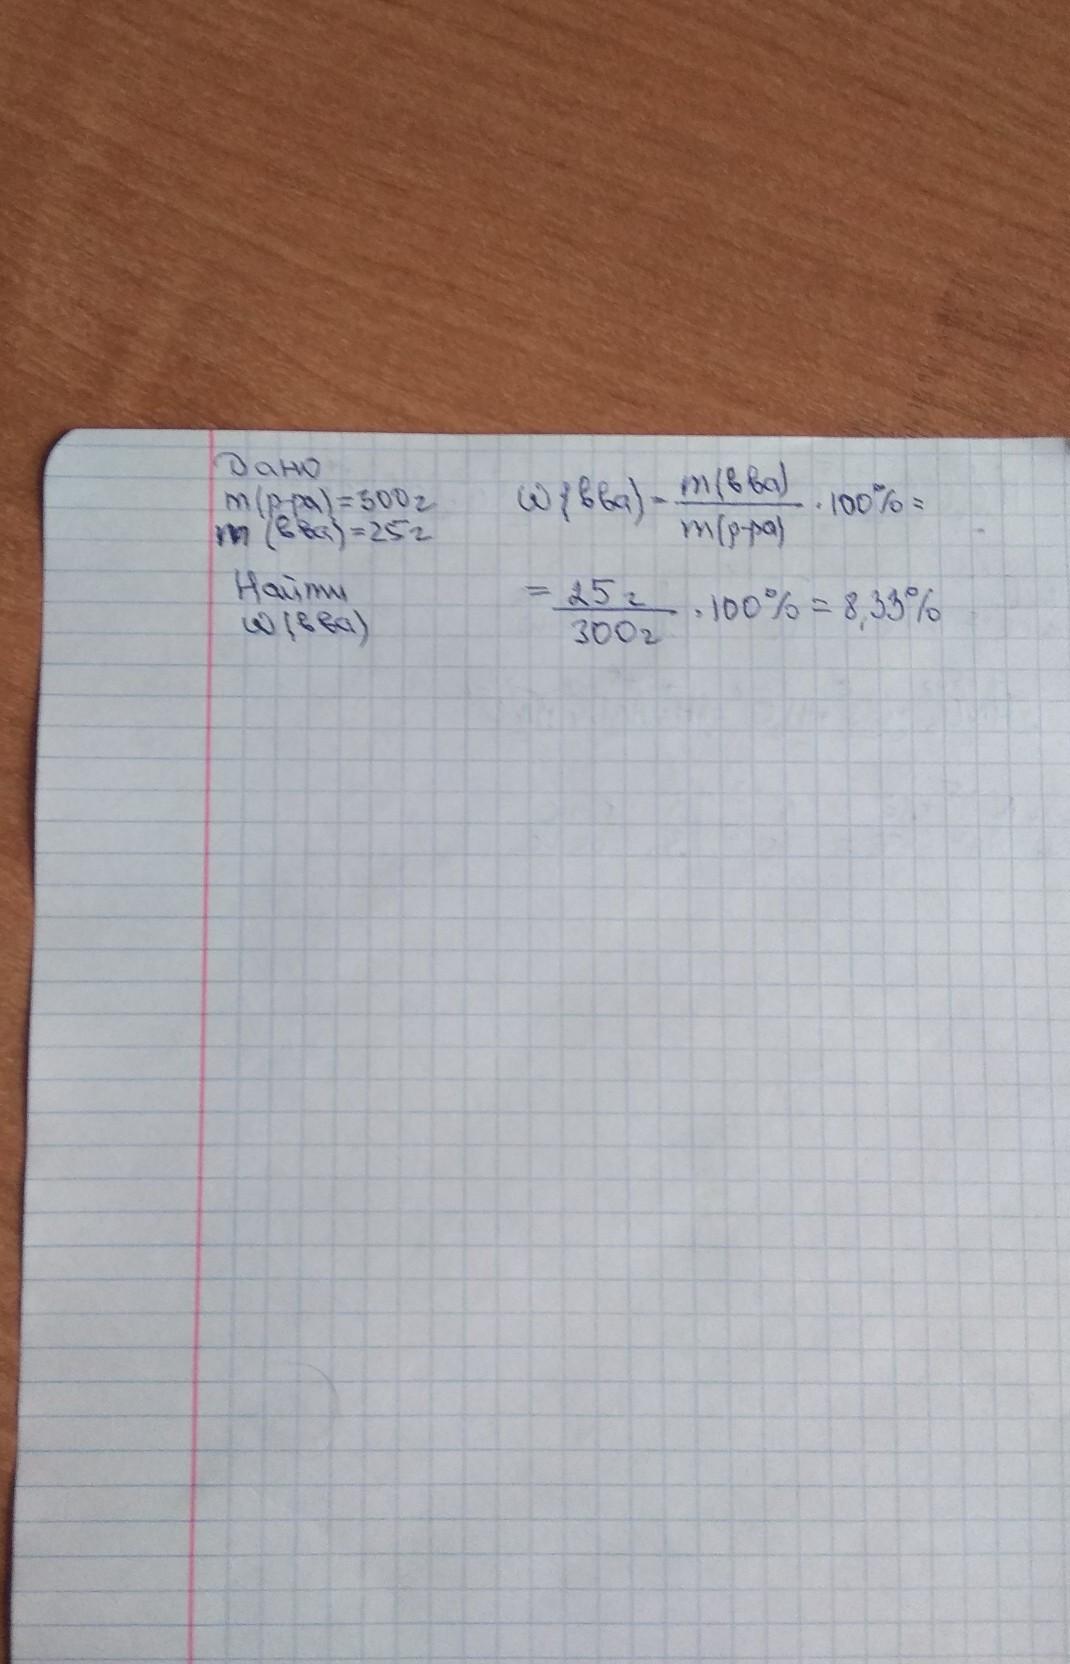 Дано
m(р-ра)=300г
m(вва)=25г
Найти
W(вва)
W(вва)-m(вва)/m(р-ра)·100%=
=25г/300г·100%=8,33%